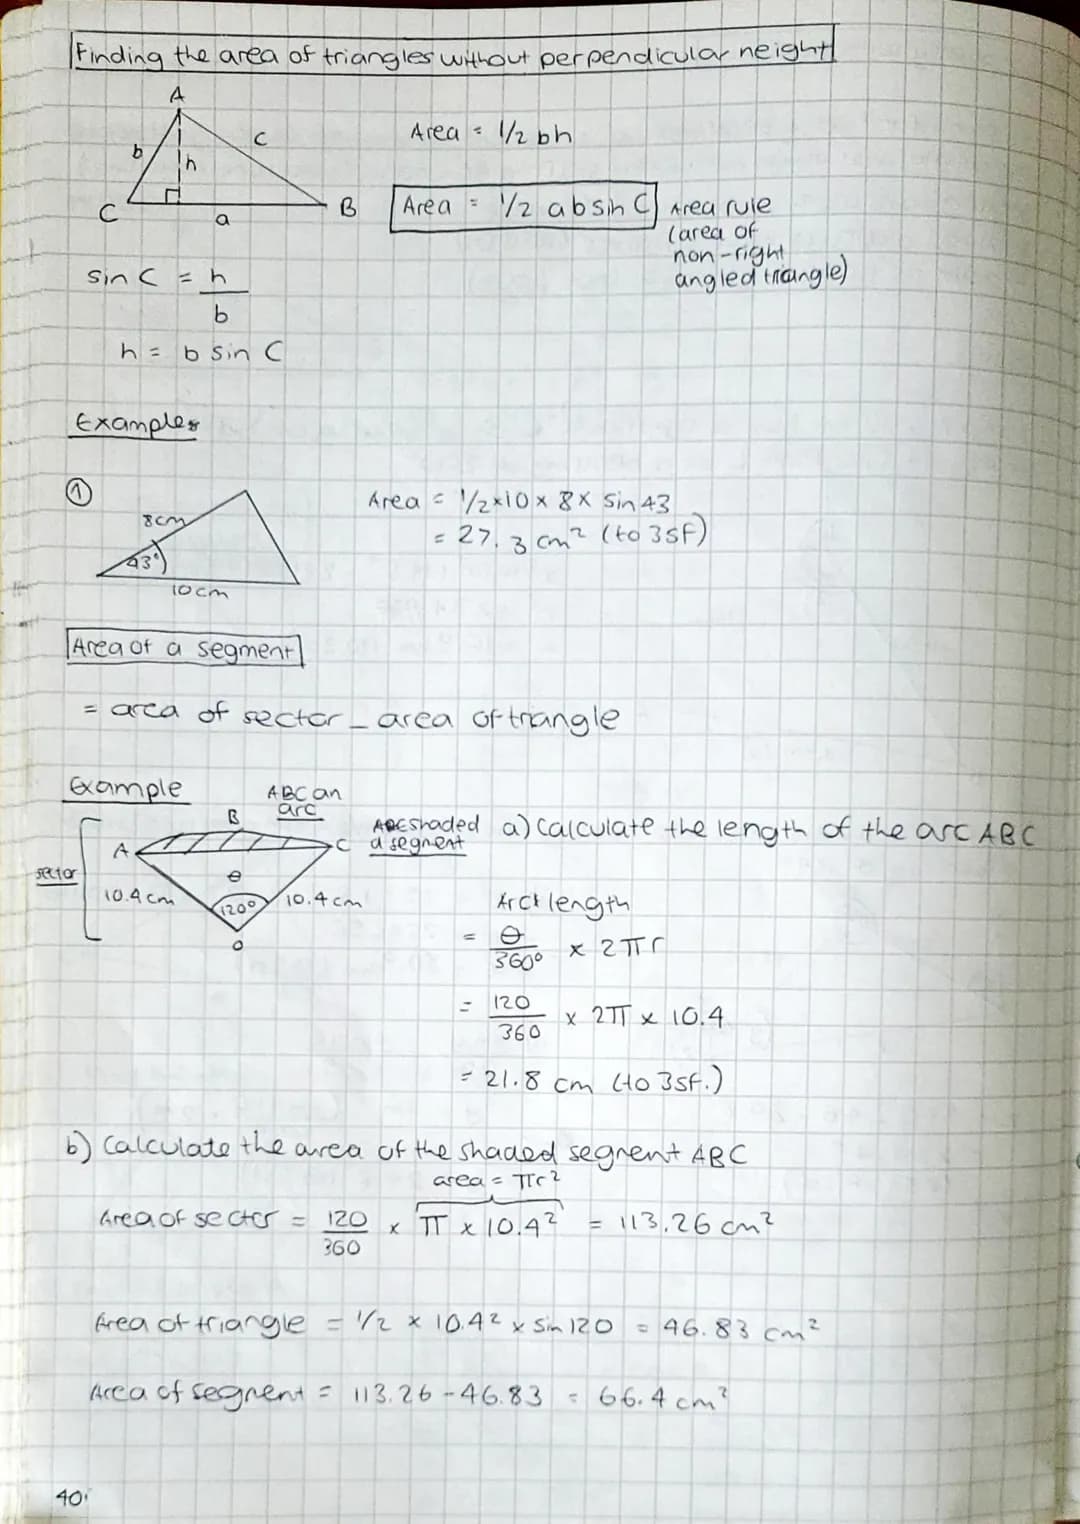 Finding the area of triangles without perpendicular height
A
b
h
c
C
a
B
Area = 1/2 bh
Area = 1/2 ab sin C
Area rule
(area of
non-right
angled triangle)
sin C = h
b
h = b sin C
Examples
①
8cm
43°
10cm
Area = 1/2 × 10 × 8 × sin 43
= 27.3 cm² (to 3sf)
Area of a segment
= area of sector - area of triangle
Example
ABC an
arc
B
A
C
ABC shaded
a segment
sector
θ
10.4cm
120°
10.4cm
O
a) Calculate the length of the arc ABC
Arc length
= θ/360° × 2πr
= 120/360 × 2π × 10.4
= 21.8 cm (to 3sf.)
b) Calculate the area of the shaded segment ABC
area = πr²
Area of sector = 120/360 × π × 10.4² = 113.26 cm²
Area of triangle = 1/2 × 10.4² × sin 120 = 46.83 cm²
Area of segment = 113.26 - 46.83 = 66.4 cm²
40